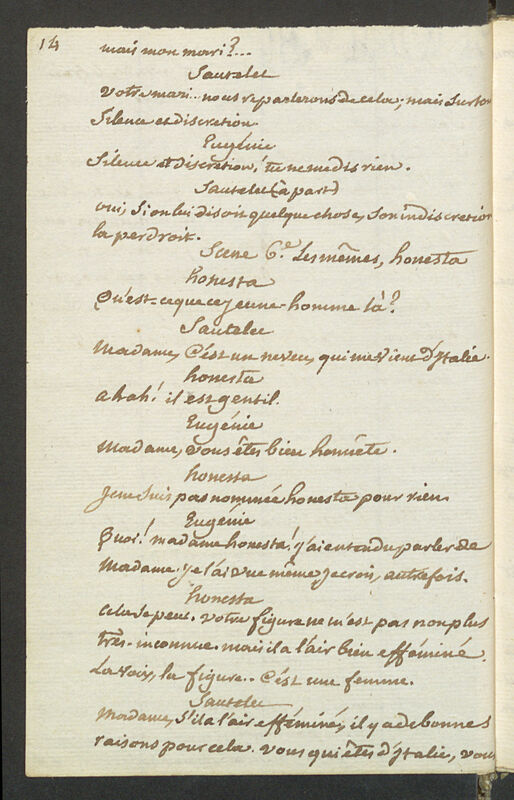 14
mais mon mari?...
Sautelet
votre mari.. nous reparlerons de cela; mais surtou
Silence et discretion
Eugénie
Silence et discretion! tu ne me dis rien.
Sautelet (à part)
oui, si on lui disoit quelque chose, son indiscretion
la perdroit.
Scene 6.e Les mêmes, honesta
honesta
Qu'est-ce que ce jeune-homme là?
Sautelet
Madame, C'est un neveu, qui me vient d'Italie.
honesta
ah ah! il est gentil.
Eugénie
Madame, vous êtes bien honnête.
honesta
je ne suis pas nommée honesta pour rien.
Eugénie
Quoi! madame honesta! j'ai entendu parler de
Madame. je l'ai vue même je crois, autrefois.
honesta
cela se peut. votre figure ne m'est pas non plus
très-inconnue. mais il a l'air bien efféminé.
La voix, la figure.. C'est une femme.
Sautelet
Madame, S'il a l'air efféminé, il y a de bonnes
raisons pour cela. vous qui êtes d'Italie, vous